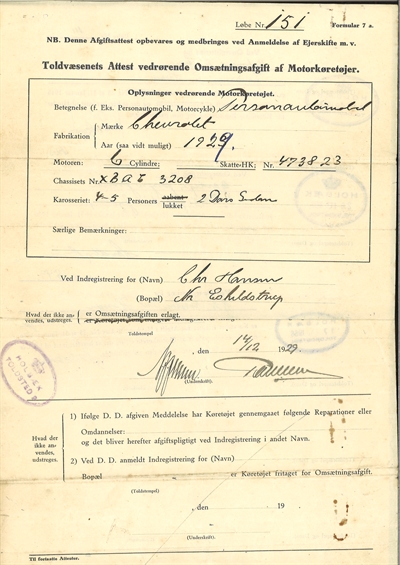 Løbe Nr. 151 Formular 7 a.
NB. Denne Afgiftsattest opbevares og medbringes ved Anmeldelse af Ejerskifte m. v.
Toldvæsenets Attest vedrørende Omsætningsafgift af Motorkøretøjer.
Oplysninger vedrørende Motorkøretøjet.
Betegnelse (f. Eks. Personautomobil, Motorcykle) Personautomobil
Fabrikation
Mærke Chevrolet
Aar (saa vidt muligt) 1929.
Motoren: 6 Cylindre; Skatte-HK; Nr. 473823
Chassisets Nr. XBAE 3208
Karosseriet: 4-5 Personers aabent lukket 2 Dørs Sedan
Særlige Bemærkninger:
Ved Indregistrering for (Navn) Chr Hansen
(Bopæl) Nr. Eskildstrup
Hvad der ikke anvendes, udstreges.
er Omsætningsafgiften erlagt.
Toldstempel
, den 14/12 1929
(Underskrift).
HOLBÆK TOLDSTED
Hvad der ikke anvendes, udstreges.
1) Ifølge D. D. afgiven Meddelelse har Køretøjet gennemgaaet følgende Reparationer eller
Omdannelser:
og det bliver herefter afgiftspligtigt ved Indregistrering i andet Navn.
2) Ved D. D. anmeldt Indregistrering for (Navn)
Bopæl er Køretøjet fritaget for Omsætningsafgift.
(Toldstempel)
, den 19
(Underskrift).
Til fortsatte Attester.